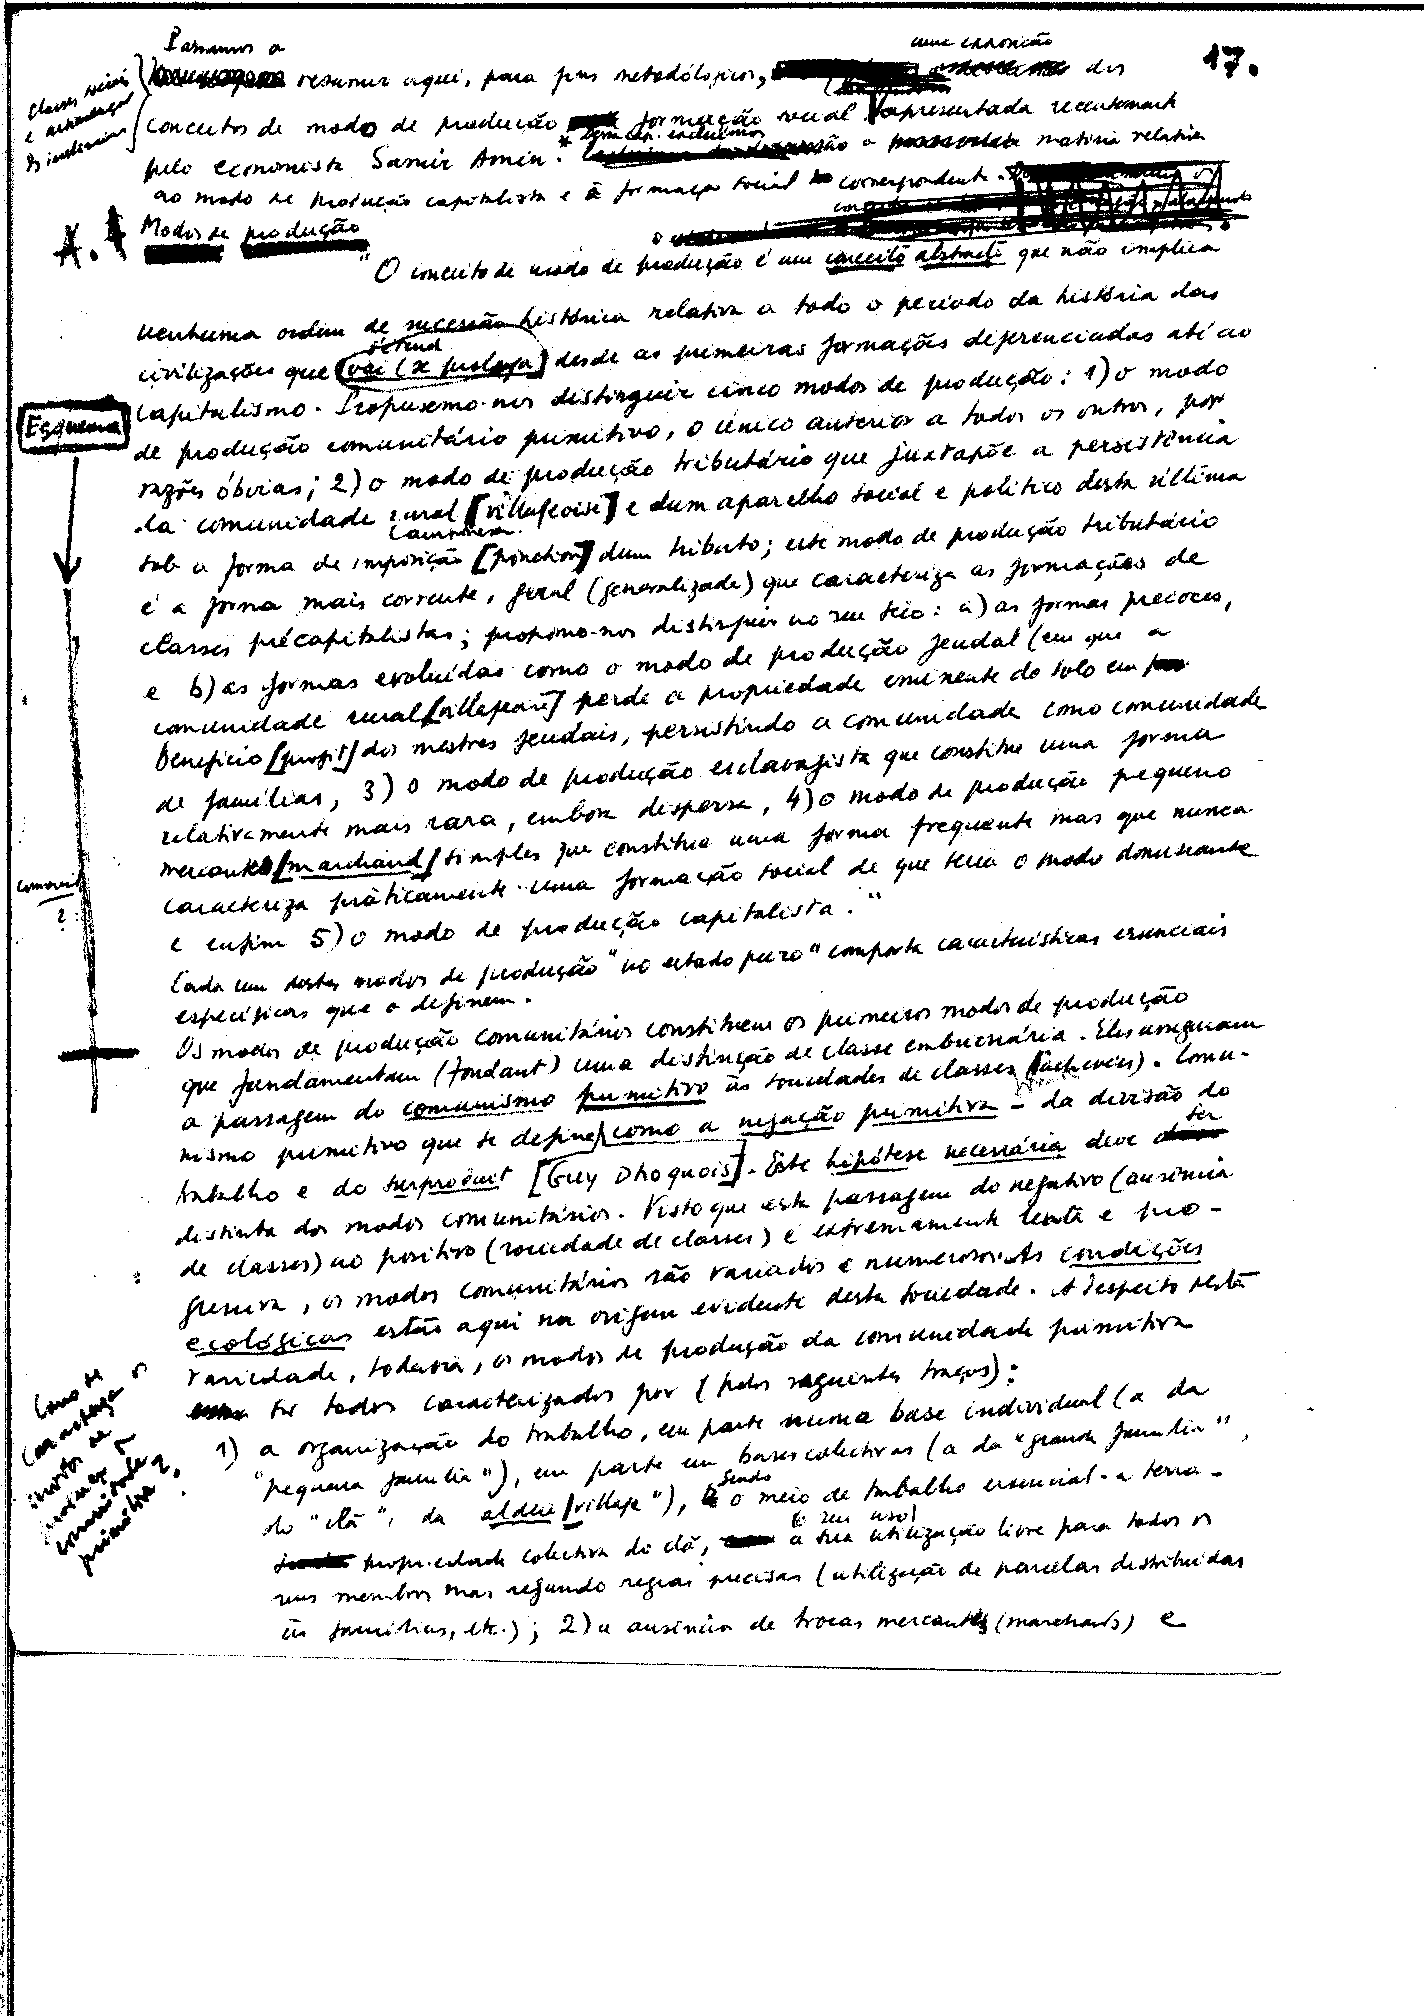 17.
Passamos a
uma exposição
resumir aqui, para fins metodológicos, dos
Classes sociais
e articulação
conceitos de modo de produção formação social apresentada recentemente
pelo economista Samir Amin. * a matéria relativa
ao modo de produção capitalista e à formação social correspondente.
A. Modos de produção
"O conceito de modo de produção é um conceito abstracto que não implica
nenhuma ordem de sucessão histórica relativa a todo o período da história das
civilizações que vai (se prolonga) desde as primeiras formações diferenciadas até ao
capitalismo. Propusemo-nos distinguir cinco modos de produção: 1) o modo
Esquema
de produção comunitário primitivo, o único anterior a todos os outros, por
razões óbvias; 2) o modo de produção tributário que juxtapõe a persistência
da comunidade rural [villageoise] e dum aparelho social e político desta última
camponesa
sob a forma de imposição [ponction] dum tributo; este modo de produção tributário
é a forma mais corrente, geral (generalizada) que caracteriza as formações de
classes précapitalistas; propomo-nos distinguir no seu seio: a) as formas precoces,
e b) as formas evoluídas como o modo de produção feudal (em que a
comunidade rural [villageoise] perde a propriedade eminente do solo em
benefício [profit] dos mestres feudais, persistindo a comunidade como comunidade
de famílias, 3) o modo de produção esclavagista que constitue uma forma
relativamente mais rara, embora dispersa, 4) o modo de produção pequeno
mercante [marchand] simples que constitue uma forma frequente mas que nunca
comercial
?
caracteriza práticamente uma formação social de que seria o modo dominante
e enfim 5) o modo de produção capitalista."
Cada um destes modos de produção "no estado puro" comporta características essenciais
específicas que o definem.
Os modos de produção comunitários constituem os primeiros modos de produção
que fundamentam (fondant) uma distinção de classe embrionária. Eles asseguram
a passagem do comunismo primitivo às sociedades de classes (achevées). Comu-
nismo primitivo que se define como a negação primitiva - da divisão do
trabalho e do surproduit [Guy Dhoquois]. Este hipótese necessária deve ser
distinta dos modos comunitários. Visto que esta passagem do negativo (ausência
de classes) ao positivo (sociedade de classes) é extremamente lenta e pro-
gressiva, os modos comunitários são variados e numerosos. As condições
ecológicas estão aqui na origem evidente desta sociedade. A despeito desta
variedade, todavia, os modos de produção da comunidade primitiva
ser todos caracterizados por (pelos seguintes traços):
Como se
caracteriza os
modos de
produção
comunidade
primitiva?
1) a organização do trabalho, em parte numa base individual (a da
"pequena família"), em parte em bases colectivas (a da "grande família",
do "clã", da aldeia [village"), sendo o meio de trabalho essencial - a terra -
(o seu uso)
propriedade colectiva do clã, a sua utilização livre para todos os
seus membros mas segundo regras precisas (utilização de parcelas distribuídas
às famílias, etc.); 2) a ausência de trocas mercantes (marchands) e